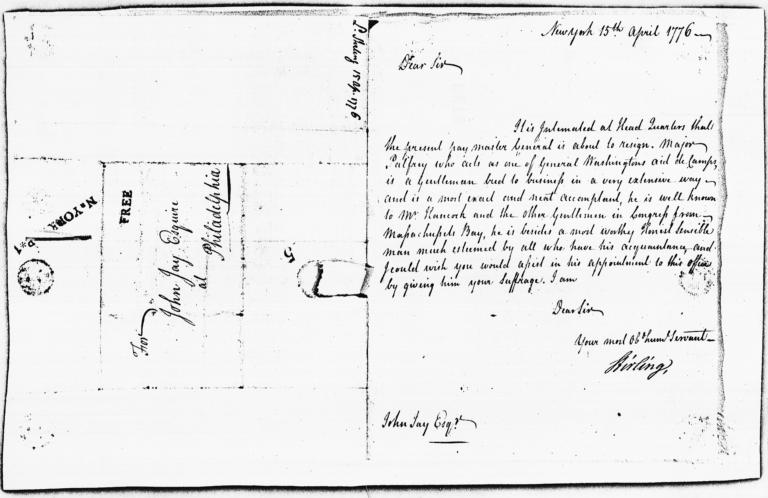 New York 15th April 1776
Dear Sir
It is Intimated at Head Quarters that
the present pay master General is about to resign. Major
Palfrey who acts as one of General Washingtons aid de Camps,
is a Gentleman bred to business in a very extensive way
and is a most exact and neat accomptant, he is well known
to Mr. Hancock and the other Gentlemen in Congress from
Massachusets Bay, he is besides a most worthy Honest Sensible
man much esteemed by all who have his acquaintance, and
I could wish you would assist in his appointment to this office
by giving him your Suffrage. I am
Dear Sir
Your most Obt. humb. Servant
Stirling,
John Jay Esqr.
15 Apl. 1776
N*YORK
FREE
For
John Jay Esquire
at
Philadelphia